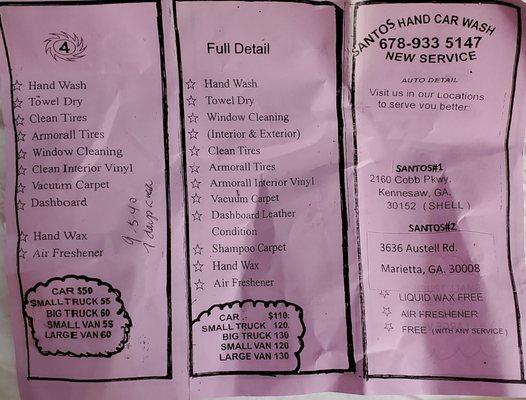 4
Hand Wash
Towel Dry
Clean Tires
Armorall Tires
Window Cleaning
Clean Interior Vinyl
Vacuum Carpet
Dashboard
Hand Wax
Air Freshener
CAR $50
SMALL TRUCK 55
BIG TRUCK 60
SMALL VAN 55
LARGE VAN 60
Full Detail
Hand Wash
Towel Dry
Window Cleaning
(Interior & Exterior)
Clean Tires
Armorall Tires
Armorall Interior Vinyl
Vacum Carpet
Dashboard Leather
Condition
Shampoo Carpet
Hand Wax
Air Freshener
CAR .- $110:
SMALL TRUCK 120.
BIG TRUCK 130
SMALL VAN 120
LARGE VAN 130
SANTOS HAND CAR WASH
678-933 5147
NEW SERVICE
AUTO DETAIL
Visit us in our Locations
to serve you better:
SANTOS#1
2160 Cobb Pkwy.
Kennesaw, GA.
30152 (SHELL)
SANTOS#2
3636 Austell Rd.
Marietta, GA. 30008
LIQUID WAX FREE
AIR FRESHENER
FREE (WITH ANY SERVICE)